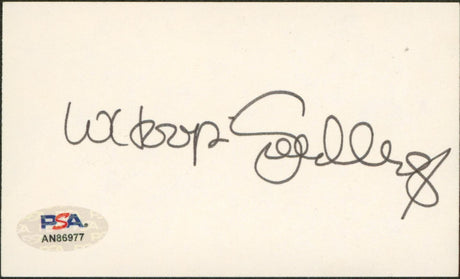 Whoopi Goldberg
PSA.
AN86977